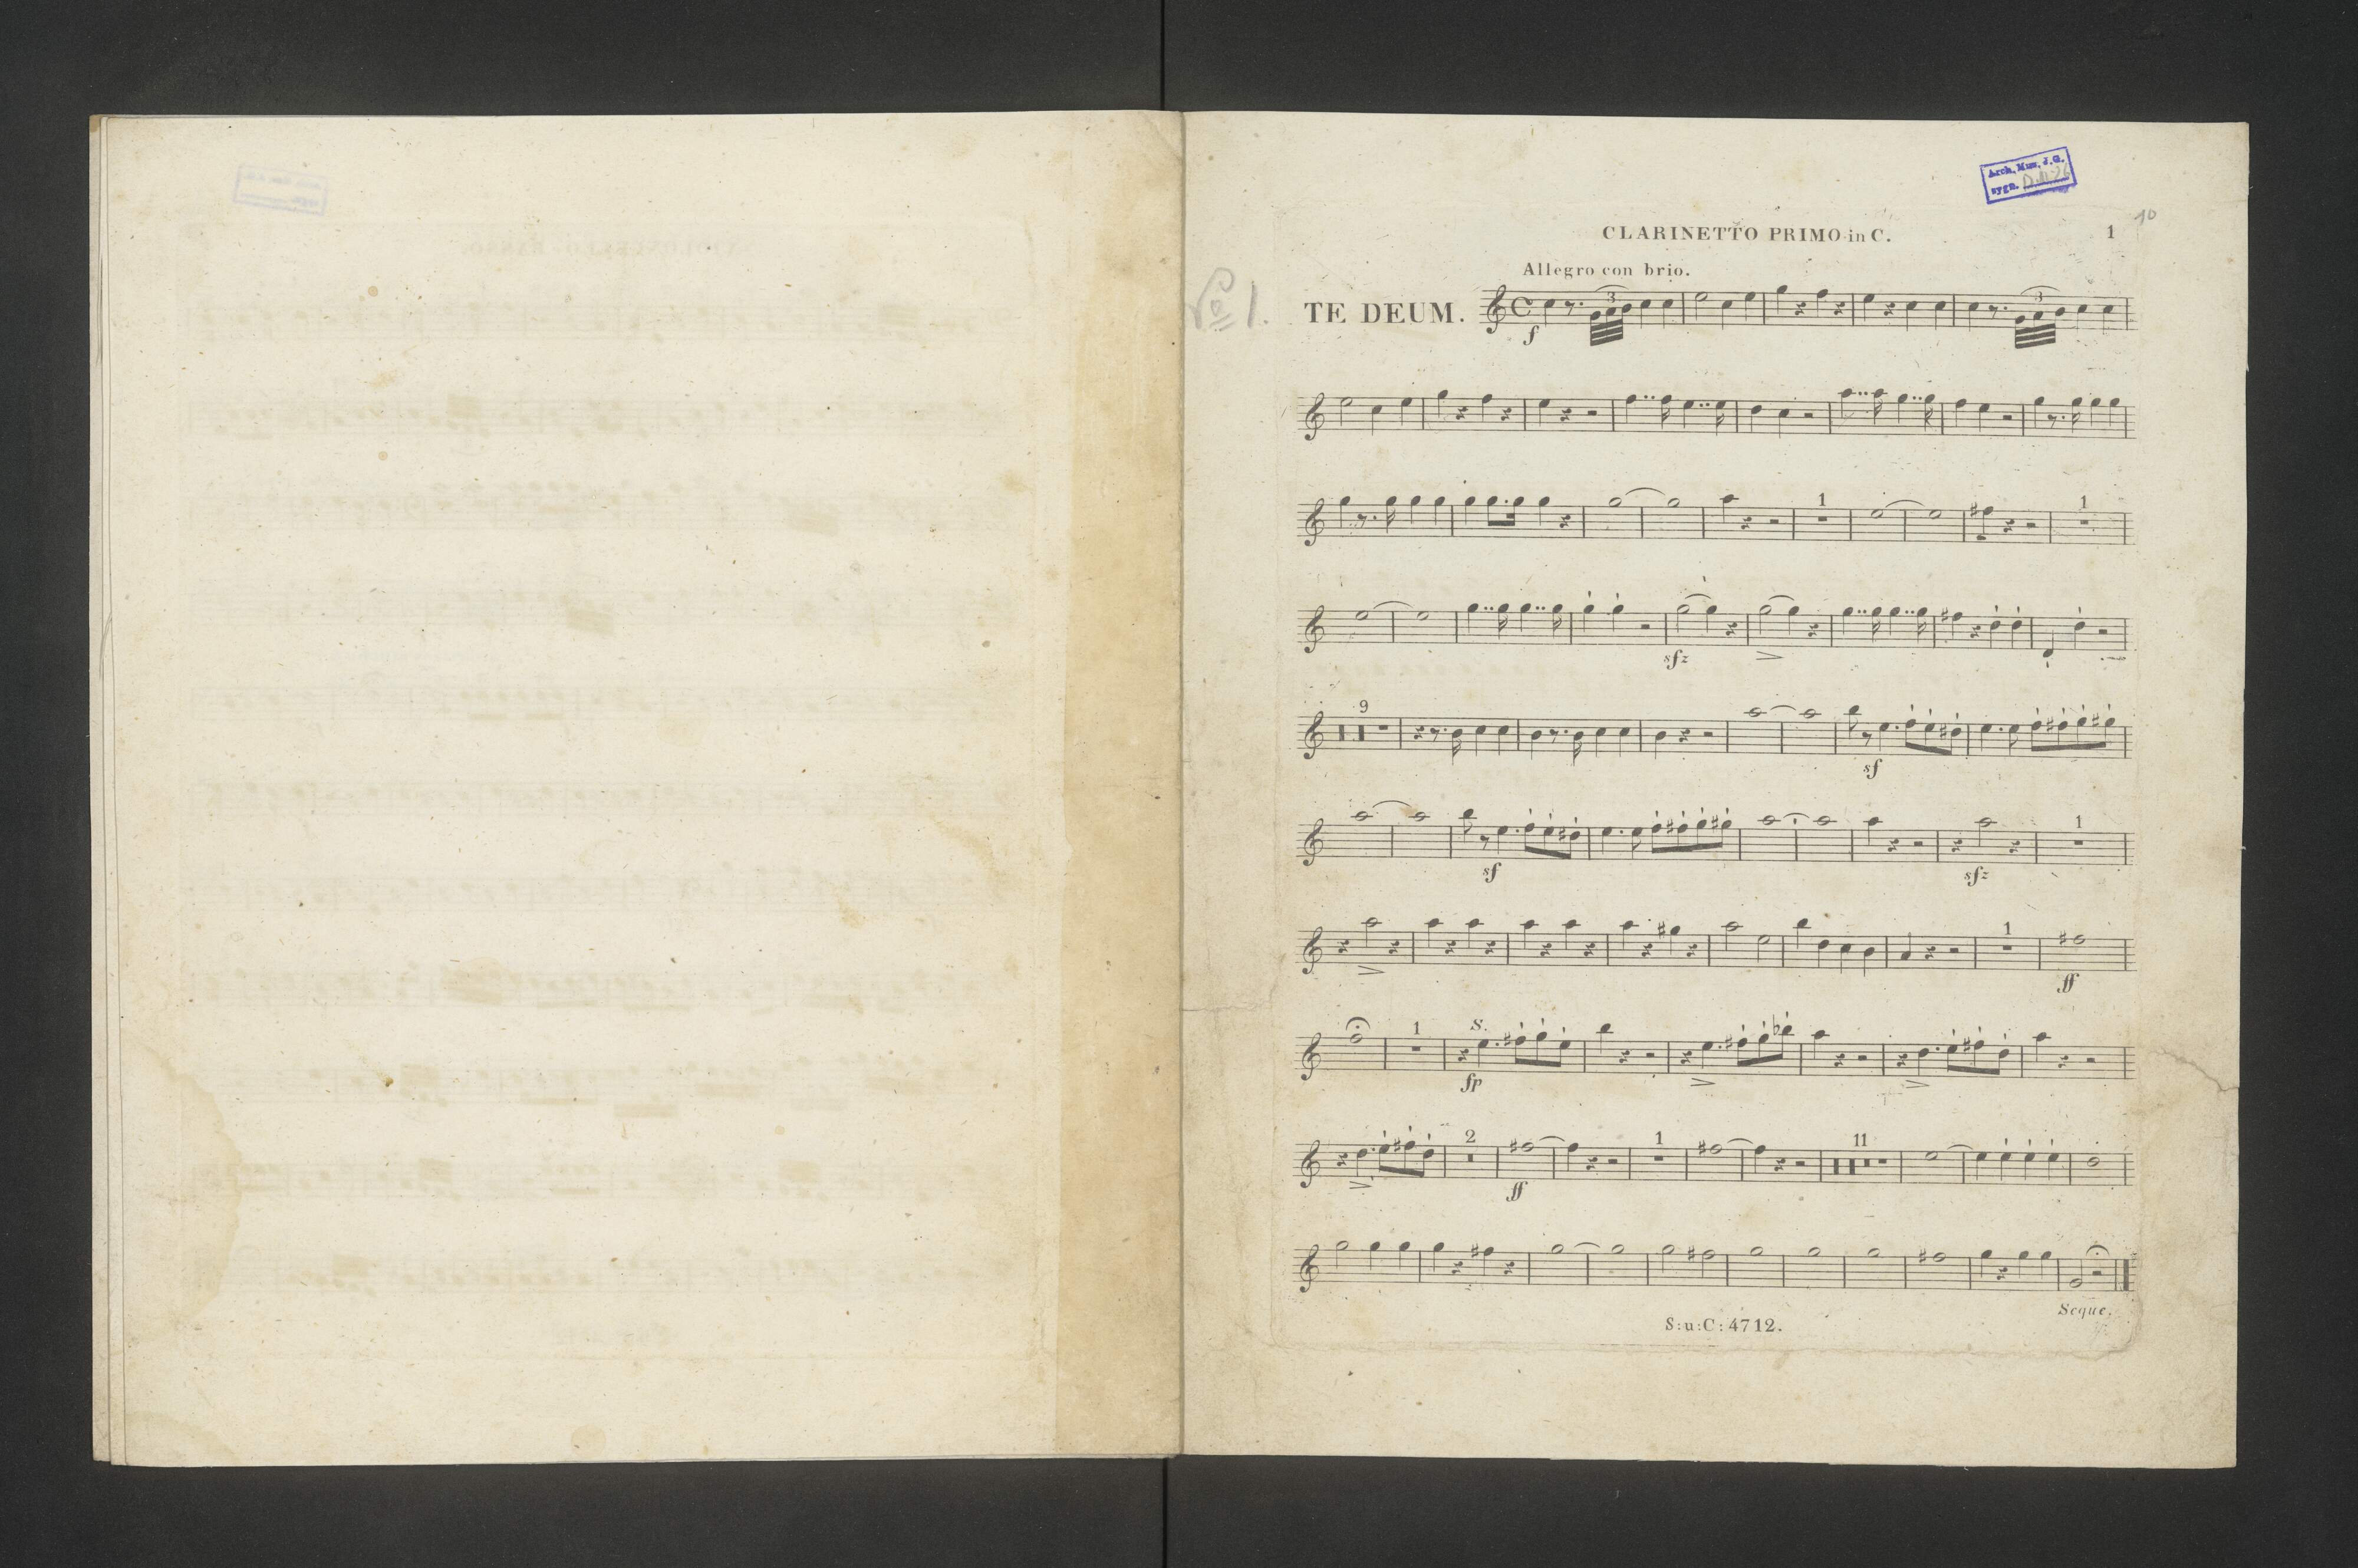 Arch. Muz. J.G.
sygn.
10
CLARINETTO PRIMO in C.
1
Allegro con brio.
No 1.
TE DEUM.
3
3
f
1
1
sfz
9
sf
1
sf
sfz
1
ff
1
S.
fp
2
1
11
ff
Seque.
S:u:C:4712.